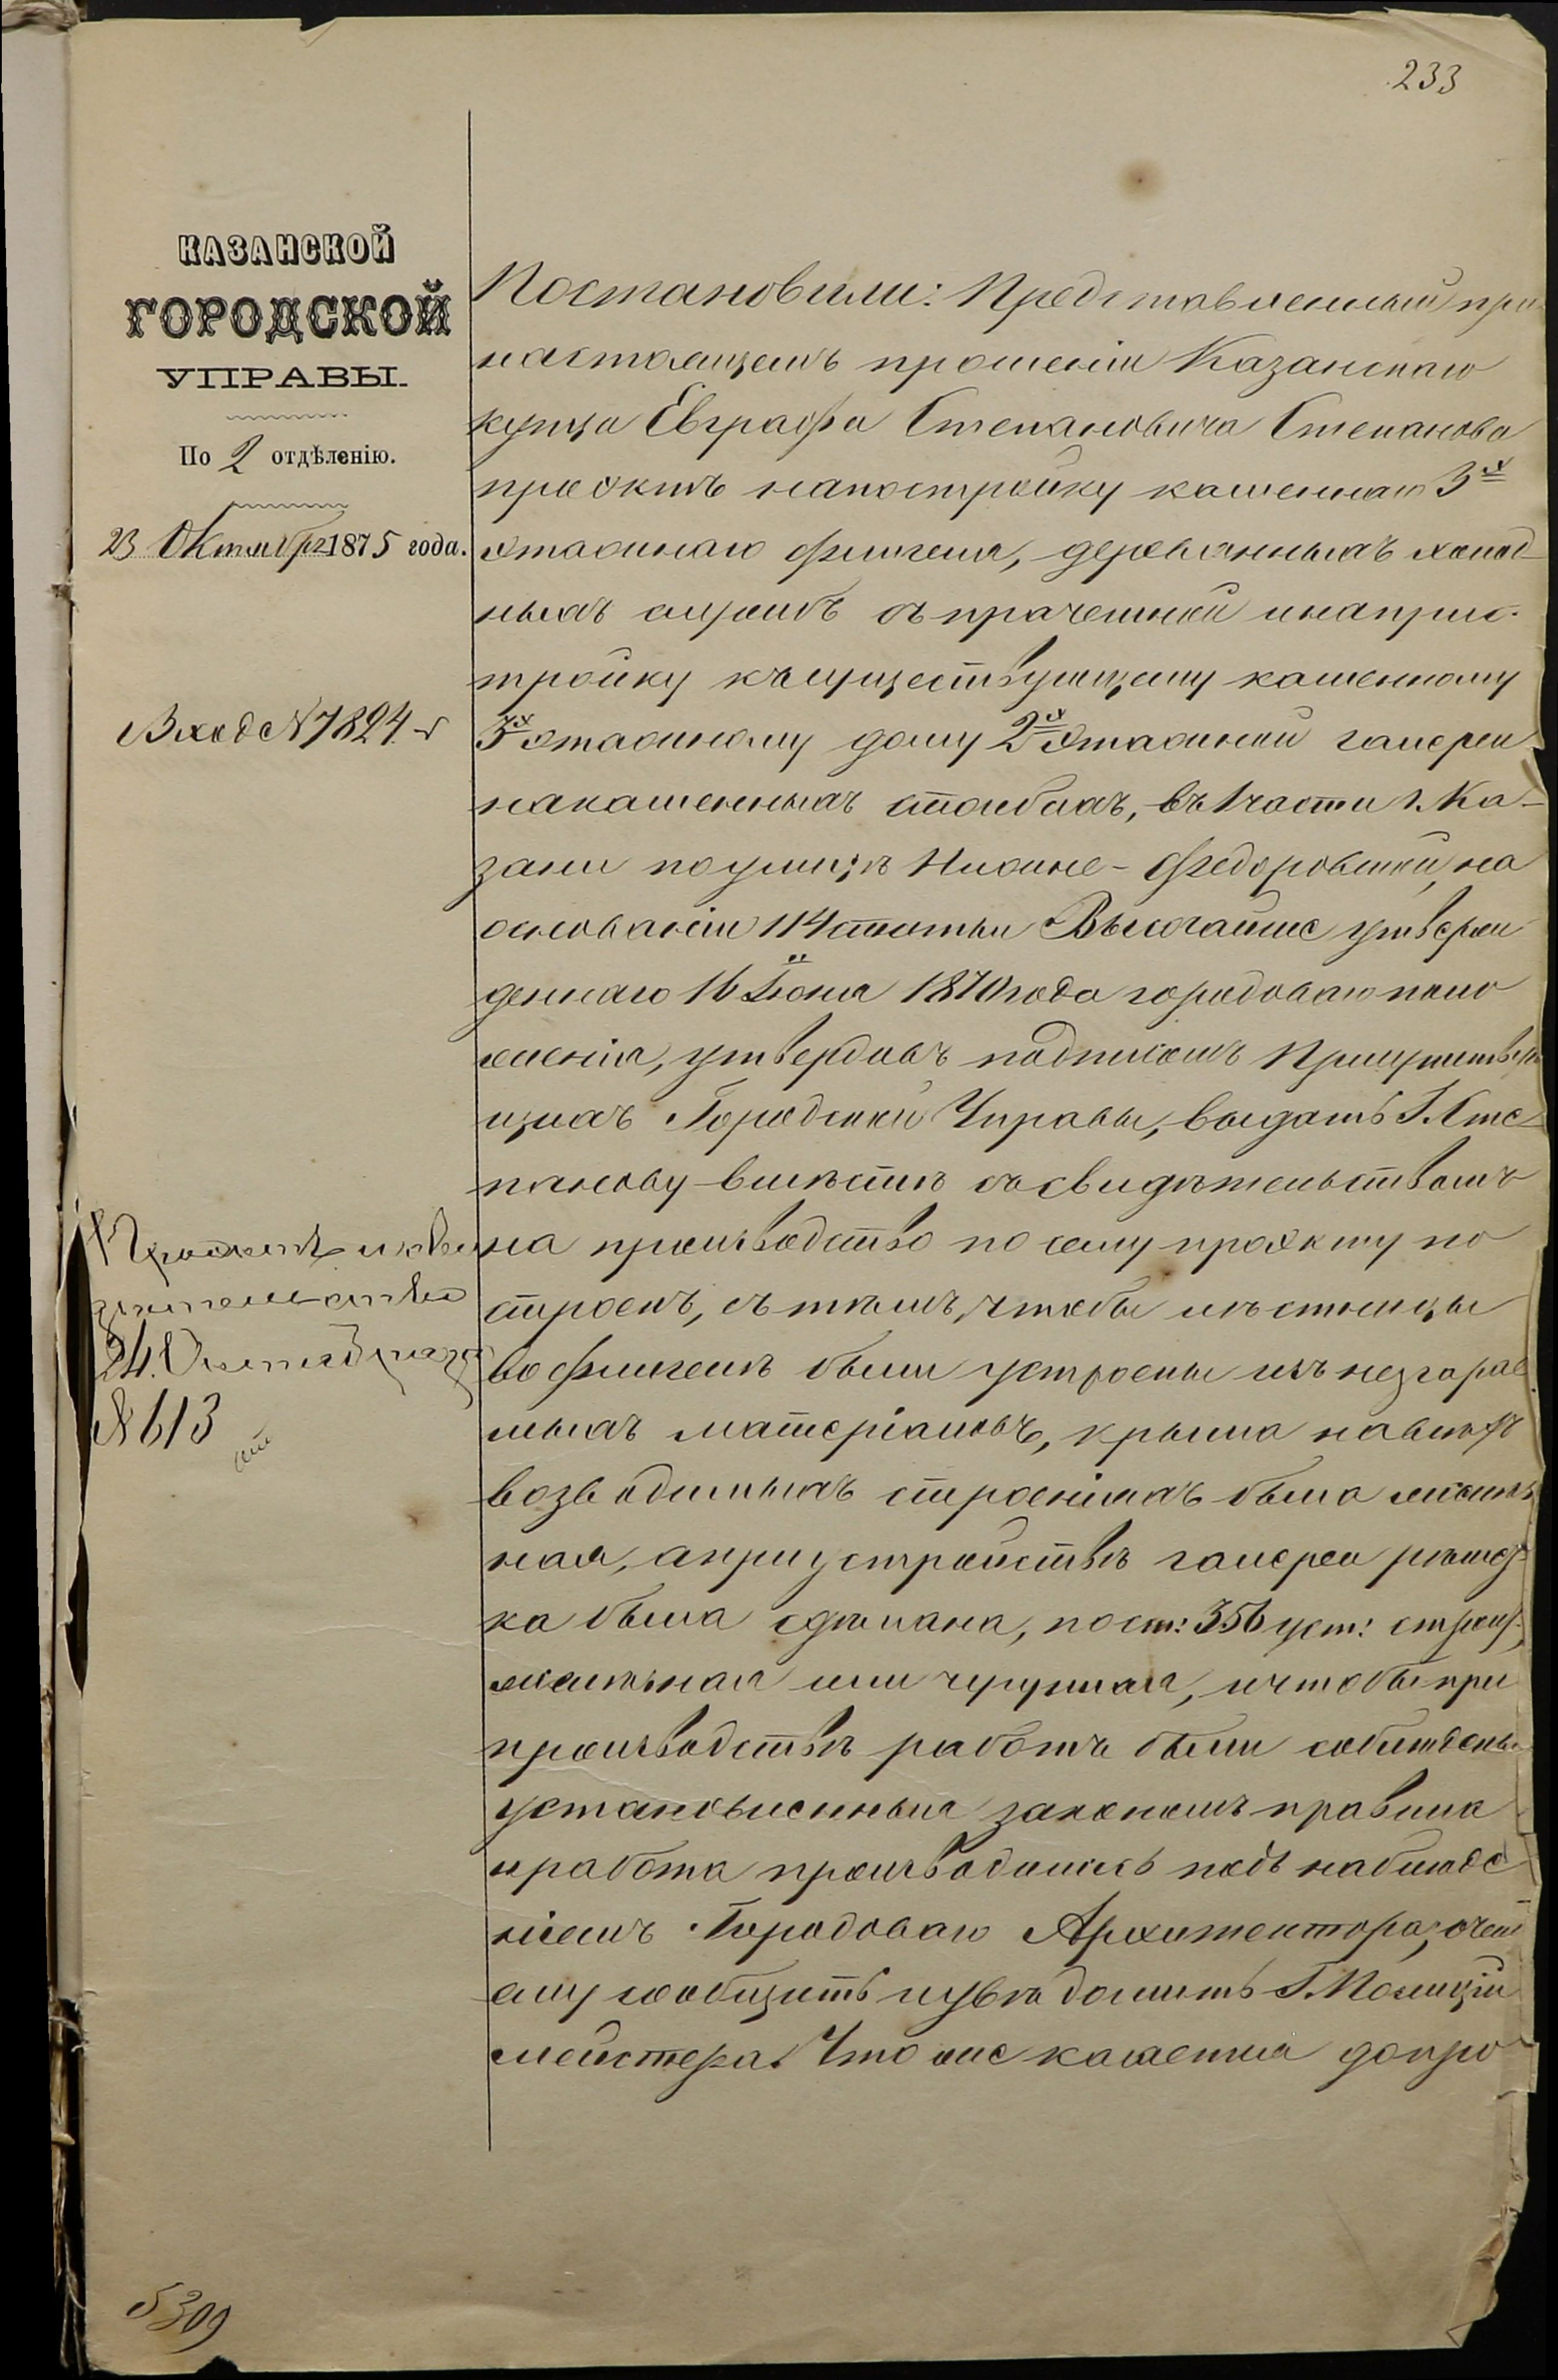 233
КАЗАНСКОЙ
ГОРОДСКОЙ
УПРАВЫ.
По 2 отдѣленію.
23 Октября 1875 года.
Вход № 7824
Проэктъ и сви
дѣтельство
24 Октября за
№ 613
Постановили: Представленный при
настоящемъ прошеніи Казанскаго
купца Евграфа Степановича Степанова
проэктъ на постройку каменнаго 3х
этажнаго флигеля, деревянныхъ холод
ныхъ службъ съ прачешной и на прис
тройку къ существующему каменному
3х этажному дому 2х этажной галереи
на каменныхъ столбахъ, въ 1 части г. Ка-
зани по улицѣ Нижне-Федоровской, на
основаніи 114 статьи Высочайше утверж
деннаго 16 Іюня 1870 года городоваго поло
женія, утвердивъ подписомъ Присутствую
щихъ Городской Управы, выдать Г. Сте
панову вмѣстѣ съ свидѣтельствомъ
на производство по сему проэкту по
строекъ, съ тѣмъ, чтобы лѣстницы
во флигелѣ были устроены изъ незгорае
мыхъ матеріаловъ, крыша на всѣхъ
возводимыхъ строеніяхъ была желѣз
ная, а при устройствѣ галереи рѣшет
ка была сдѣлана, по ст: 356 уст: строит:,
желѣзная или чугунная, и чтобы при
производствѣ работъ были соблюдены
установленныя закономъ правила
и работа производилась подъ наблюде
ніемъ Городоваго Архитектора, о чемъ
ему сообщить и увѣдомить Г. Полиціи
мейстера. Что же касается до про
5309